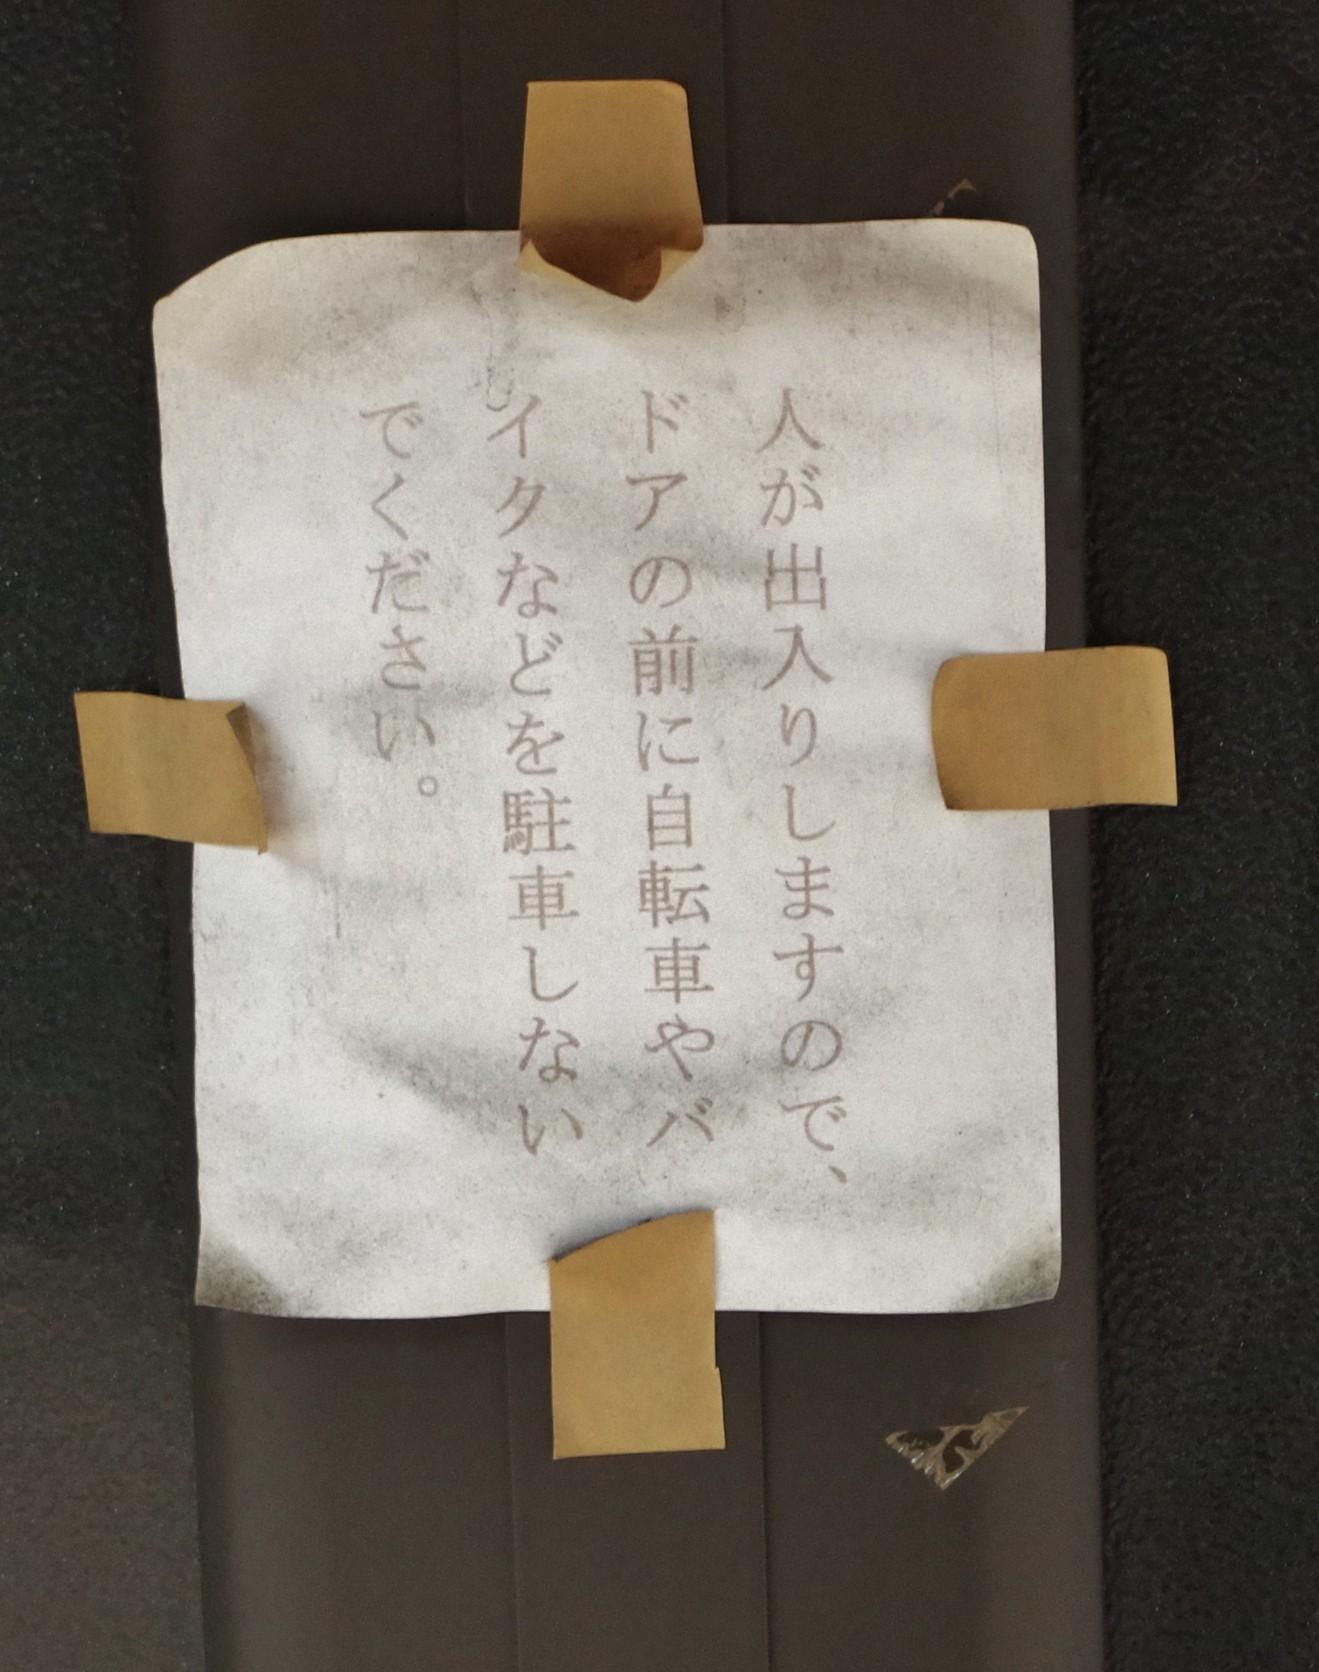 人が出入りしますので、
ドアの前に自転車やバ
イクなどを駐車しない
でください。